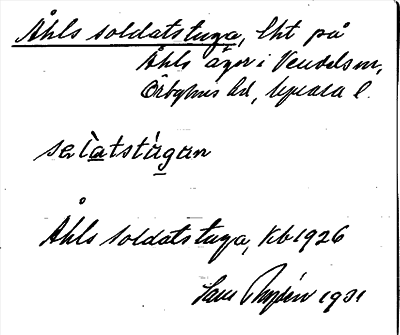 Åhls soldatstuga, lht på
Åhls ägor i Vendels sn,
Örbyhus hd, Uppsala l.
salatstùgan
Åhls soldatstuga, Kb 1926
1931